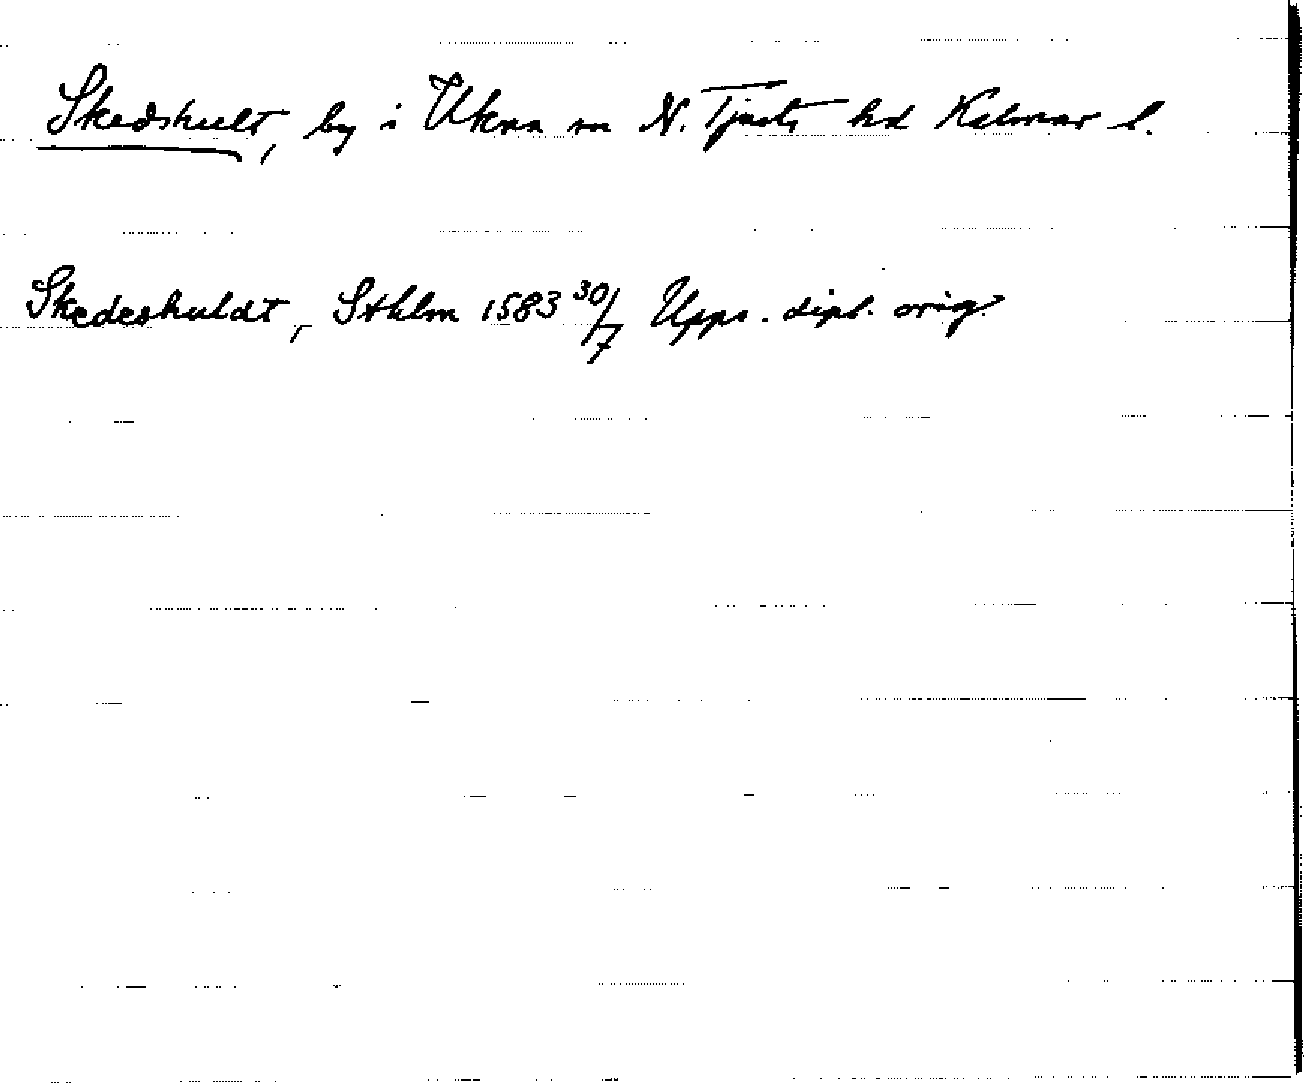 Skedshult, by i Ukna sn N. Tjusts hd Kalmar l.
Skedeshuldt, Sthlm 1583 30/7 Upps. dipl. orig